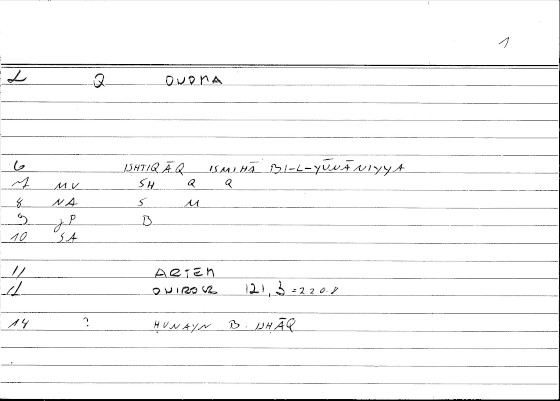 1
2 Q ονομα
6 ISHTIQĀQ ISMIHĀ BI-L-YŪNĀNIYYA
7 MV SH Q Q
8 NA S M
9 gP B
10 SA
11 ARTEM
12 ONIROCR 121, 3 = 220.8
14 ? ḤUNAYN B. ISḤĀQ